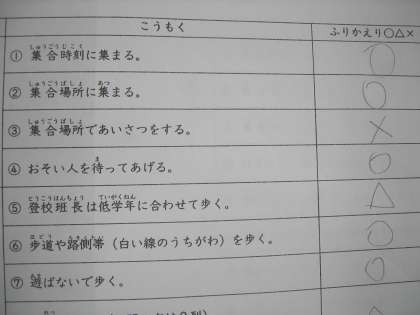 こうもく ふりかえり○△×
① 集合時刻に集まる。 ○
② 集合場所に集まる。 ○
③ 集合場所であいさつをする。 ×
④ おそい人を待ってあげる。 ○
⑤ 登校班長は低学年に合わせて歩く。 △
⑥ 歩道や路側帯（白い線のうちがわ）を歩く。 ○
⑦ 遊ばないで歩く。 ○